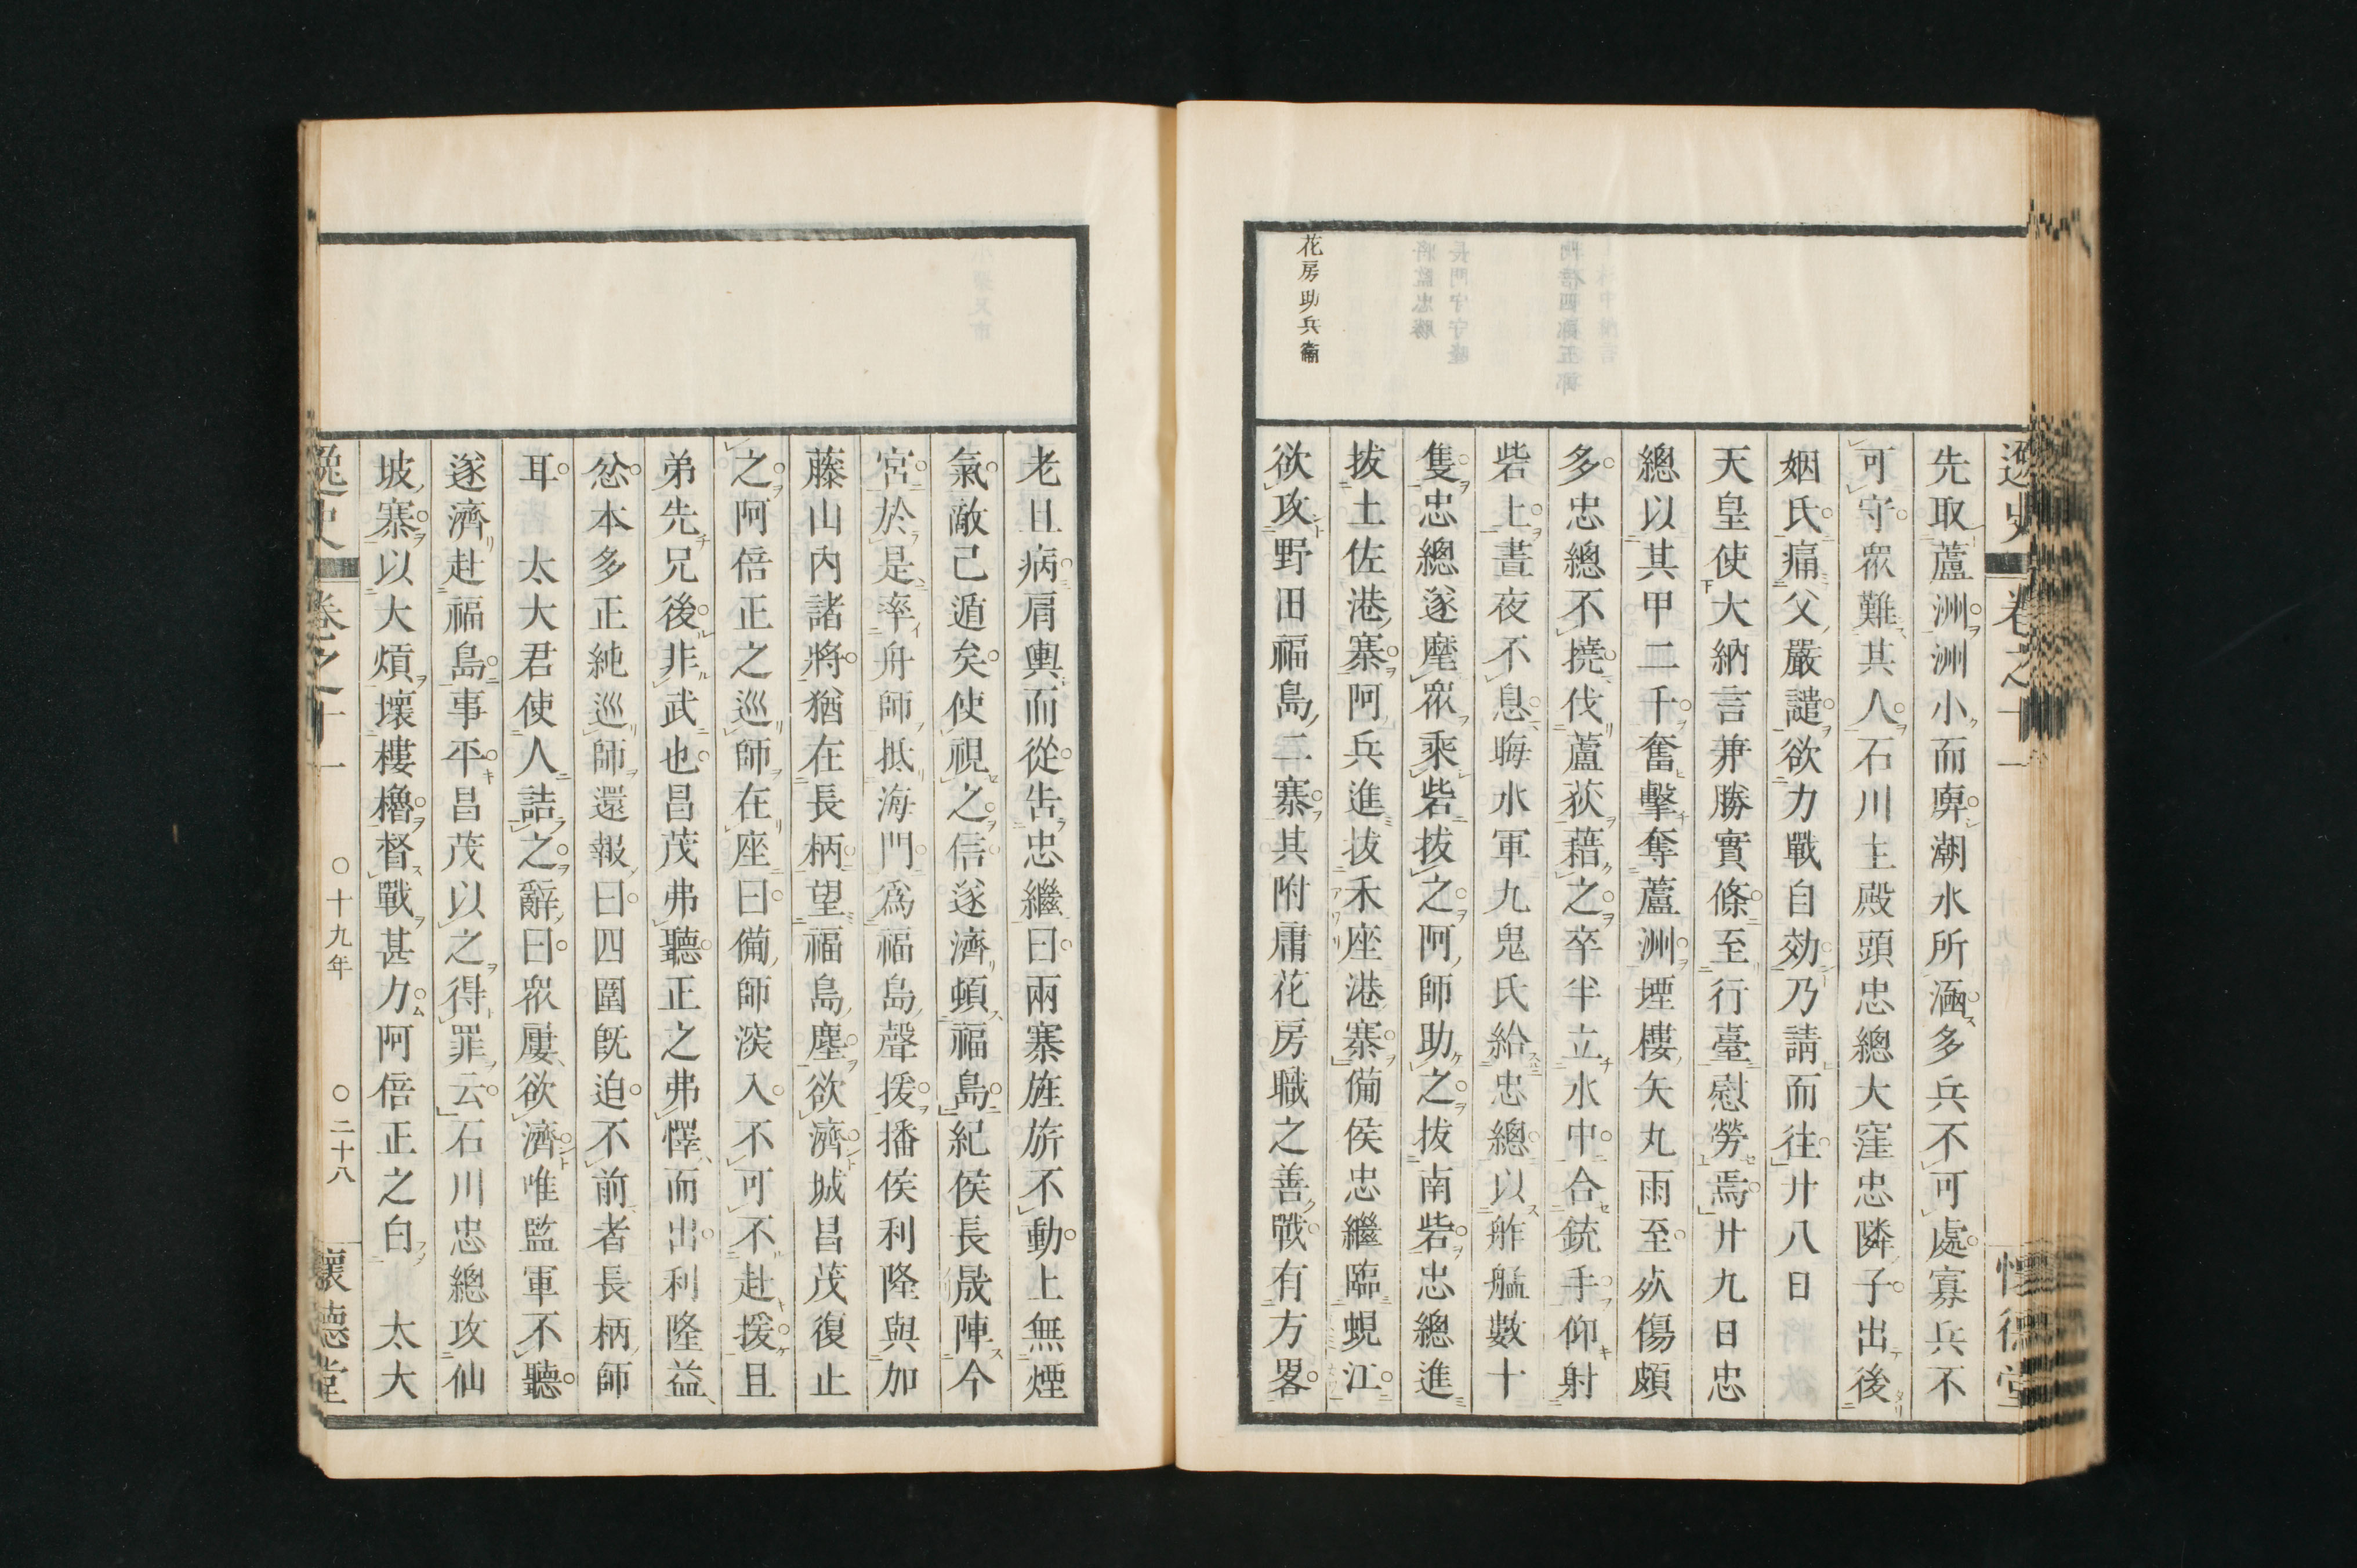 逸史 卷之十一 懷德堂
先取蘆洲洲小而庳潮水所涵多兵不可處寡兵不
可守衆難其人石川主殿頭忠總大窪忠隣子出後
姻氏痛父嚴譴欲力戰自効乃請而往廾八日
天皇使大納言兼勝實條至行臺慰勞焉廾九日忠
總以其甲二千奮擊奪蘆洲堙樓矢丸雨至死傷頗
多忠總不撓伐蘆荻藉之卒半立水中合銃手仰射
砦上晝夜不息晦水軍九鬼氏給忠總以舴艋數十
隻忠總遂麾衆乘砦拔之阿師助之拔南砦忠總進
拔土佐港寨阿兵進拔禾座港寨備侯忠繼臨蜆江
欲攻野田福島二寨其附庸花房職之善戰有方畧
花房助兵衞
老且病肩輿而從告忠繼曰兩寨旌旂不動上無煙
氣敵已遁矣使視之信遂濟頓福島紀侯長晟陣今
宮於是率舟師抵海門爲福島聲援播侯利隆與加
藤山內諸將猶在長柄望福島塵欲濟城昌茂復止
之阿倍正之巡師在座曰備師深入不可不赴援且
弟先兄後非武也昌茂弗聽正之弗懌而出利隆益
忿本多正純巡師還報曰四圍既迫不前者長柄師
耳 太大君使人詰之辭曰衆屢欲濟唯監軍不聽
遂濟赴福島事平昌茂以之得罪云石川忠總攻仙
坡寨以大熕壞樓櫓督戰甚力阿倍正之白 太大
逸史 卷之十一 〇十九年 〇二十八 懷德堂